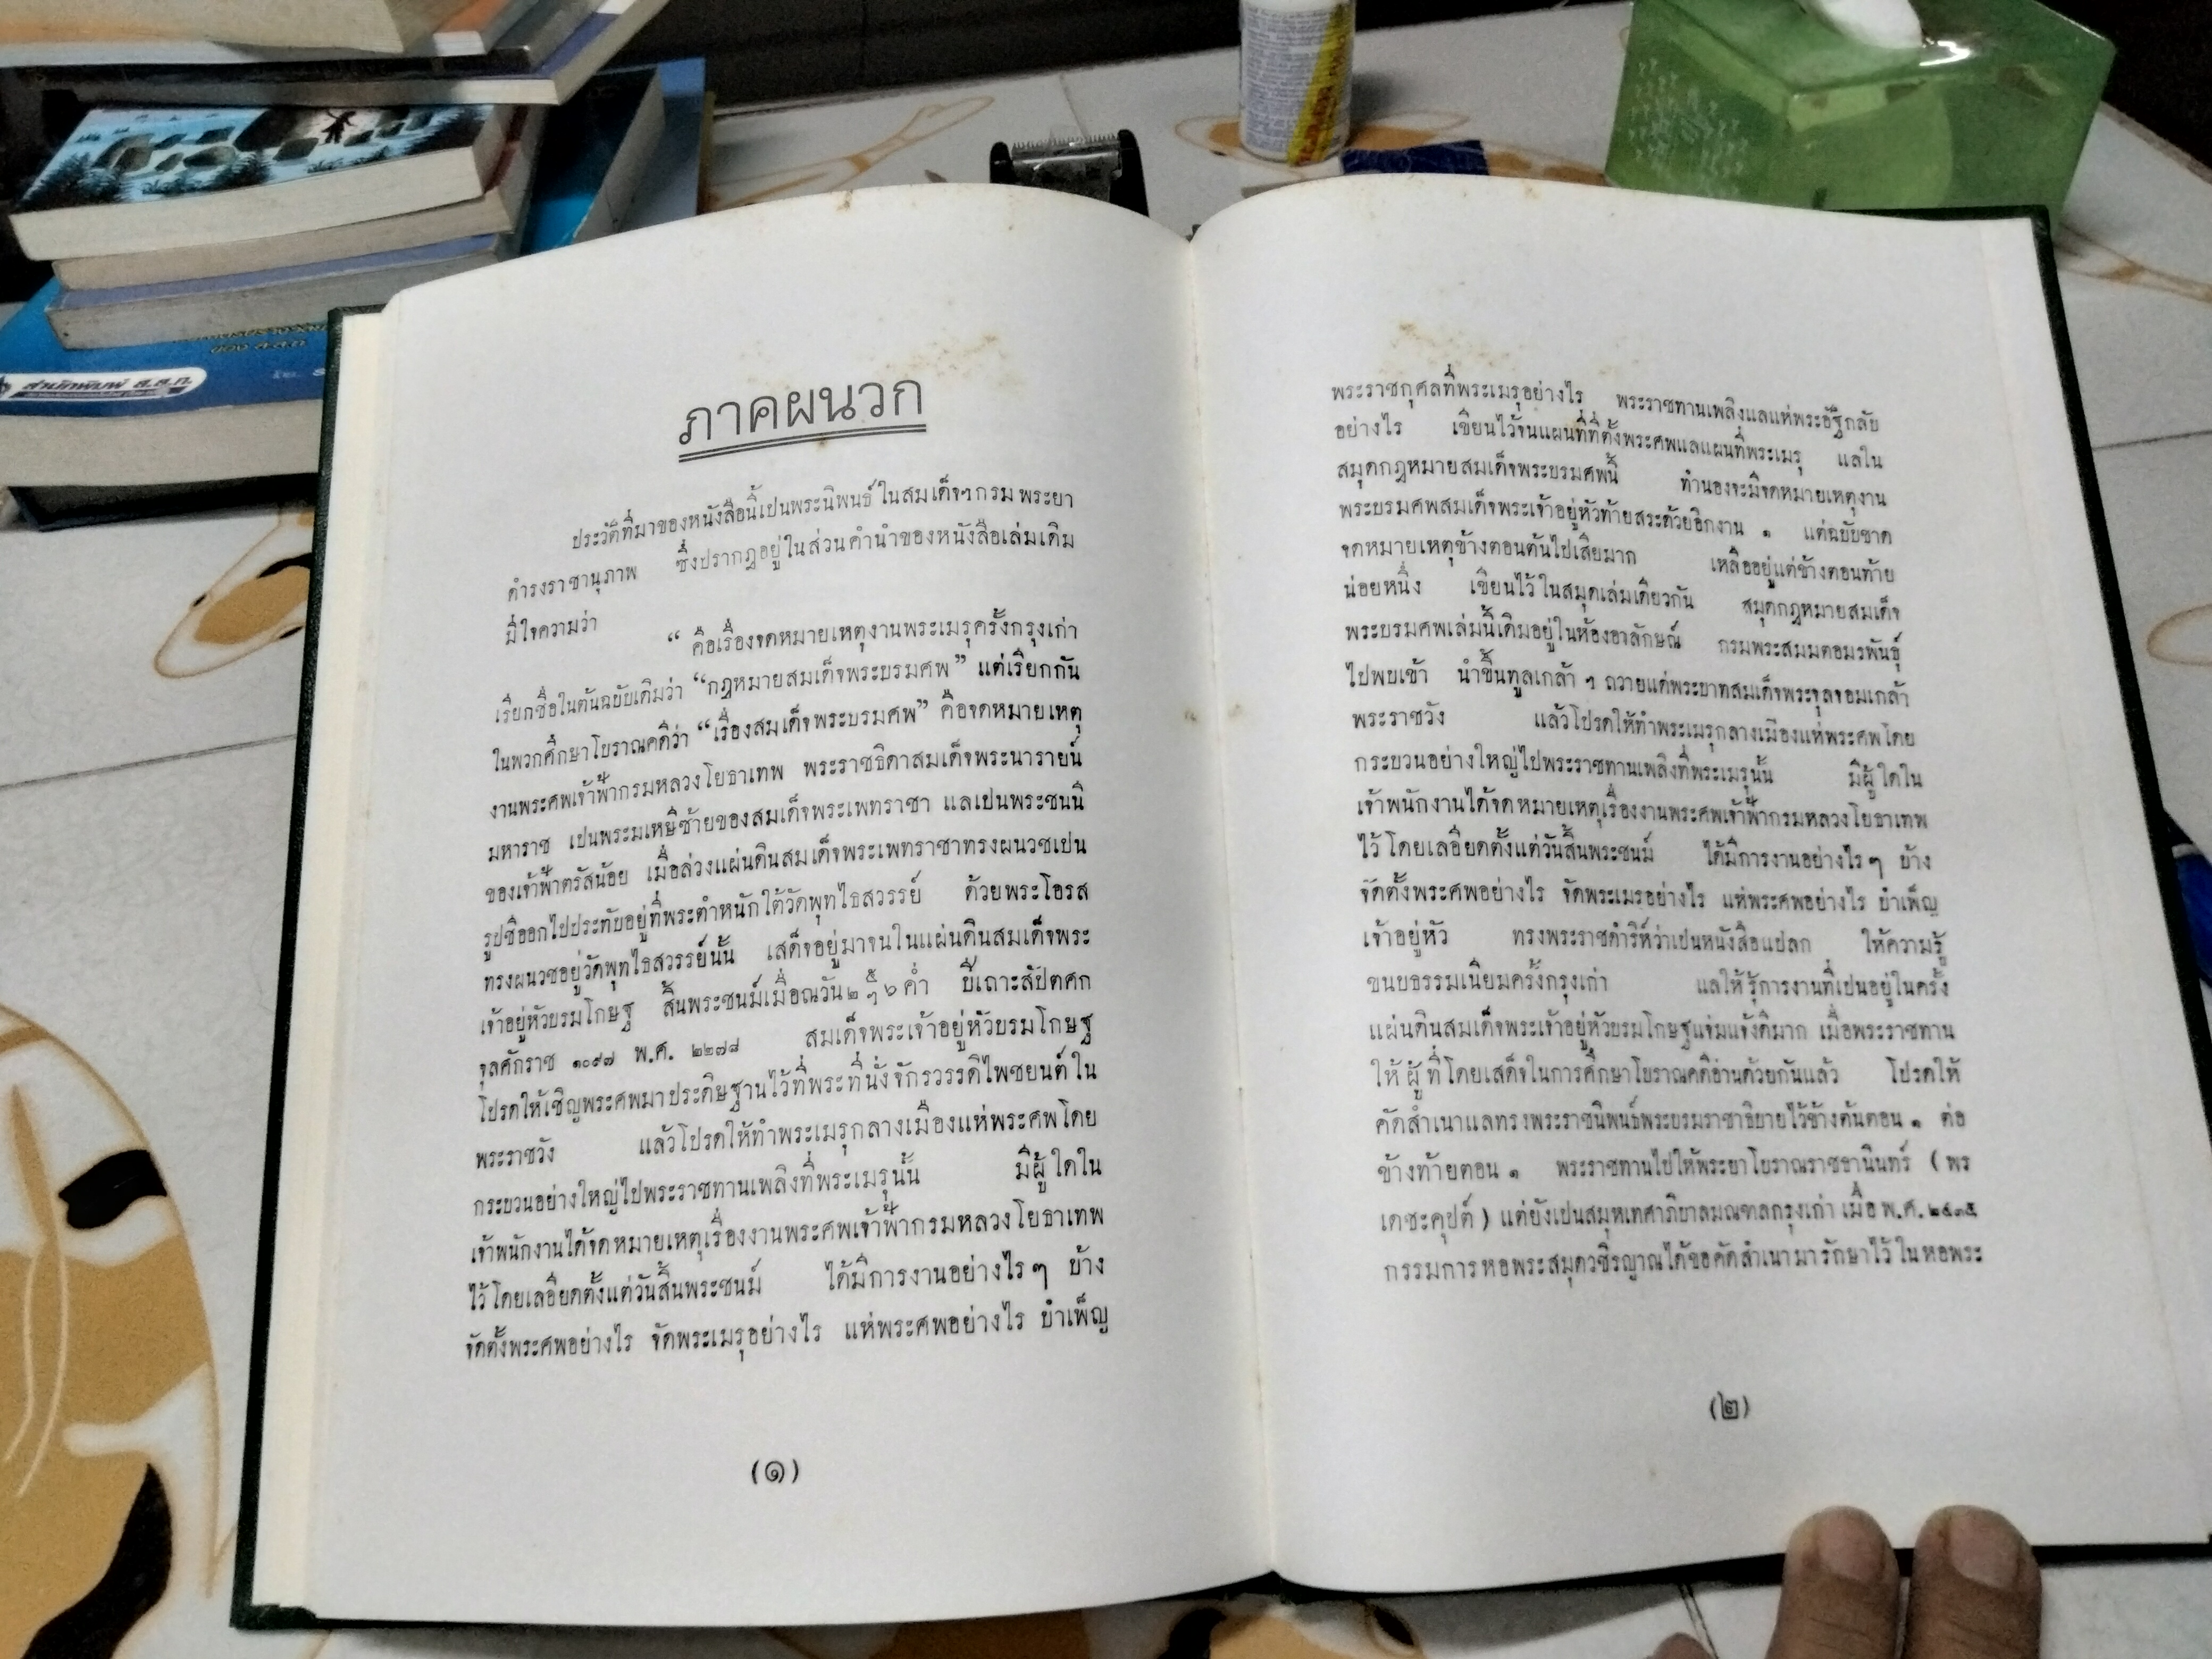 ภาคผนวก
ประวัติที่มาของหนังสือนี้เป็นพระนิพนธ์ในสมเด็จฯกรมพระยา
ดำรงราชานุภาพ ซึ่งปรากฏอยู่ในส่วนคำนำของหนังสือเล่มเดิม
มีใจความว่า
“ คือเรื่องจดหมายเหตุงานพระเมรุครั้งกรุงเก่า
เรียกชื่อในต้นฉบับเดิมว่า “กฎหมายสมเด็จพระบรมศพ” แต่เรียกกัน
ในพวกศึกษาโบราณคดีว่า “เรื่องสมเด็จพระบรมศพ” คือจดหมายเหตุ
งานพระศพเจ้าฟ้ากรมหลวงโยธาเทพ พระราชธิดาสมเด็จพระนารายน์
มหาราช เปนพระมเหษีซ้ายของสมเด็จพระเพทราชา แลเปนพระชนนี
ของเจ้าฟ้าตรัสน้อย เมื่อล่วงแผ่นดินสมเด็จพระเพทราชาทรงผนวชเปน
รูปชีออกไปประทับอยู่ที่พระตำหนักใต้วัดพุทไธสวรรย์ ด้วยพระโอรส
ทรงผนวชอยู่วัดพุทไธสวรรย์นั้น เสด็จอยู่มาจนในแผ่นดินสมเด็จพระ
เจ้าอยู่หัวบรมโกษฐ สิ้นพระชนม์เมื่อณวัน ๒ ๖ ค่ำ ปีเถาะสัปตศก
จุลศักราช ๑๐๙๗ พ.ศ. ๒๒๗๘ สมเด็จพระเจ้าอยู่หัวบรมโกษฐ
โปรดให้เชิญพระศพมาประดิษฐานไว้ที่พระที่นั่งจักรวรรดิไพชยนต์ใน
พระราชวัง แล้วโปรดให้ทำพระเมรุกลางเมืองแห่พระศพโดย
กระบวนอย่างใหญ่ไปพระราชทานเพลิงที่พระเมรุนั้น มีผู้ใดใน
เจ้าพนักงานได้จดหมายเหตุเรื่องงานพระศพเจ้าฟ้ากรมหลวงโยธาเทพ
ไว้โดยเลอียดตั้งแต่วันสิ้นพระชนม์ ได้มีการงานอย่างไร ๆ บ้าง
จัดตั้งพระศพอย่างไร จัดพระเมรุอย่างไร แห่พระศพอย่างไร บำเพ็ญ
(๑)
พระราชกุศลที่พระเมรุอย่างไร พระราชทานเพลิงแลแห่พระอัฐิกลับ
อย่างไร เขียนไว้จนแผนที่ที่ตั้งพระศพแลแผนที่พระเมรุ แลใน
สมุดกฎหมายสมเด็จพระบรมศพนี้ ทำนองจะมีจดหมายเหตุงาน
พระบรมศพสมเด็จพระเจ้าอยู่หัวท้ายสระด้วยอีกงาน ๑ แต่ฉบับขาด
จดหมายเหตุข้างตอนต้นไปเสียมาก เหลืออยู่แต่ข้างตอนท้าย
น่อยหนึ่ง เขียนไว้ในสมุดเล่มเดียวกัน สมุดกฎหมายสมเด็จ
พระบรมศพเล่มนี้เดิมอยู่ในห้องอาลักษณ์ กรมพระสมมตอมรพันธุ์
ไปพบเข้า นำขึ้นทูลเกล้า ฯ ถวายแด่พระบาทสมเด็จพระจุลจอมเกล้า
พระราชวัง แล้วโปรดให้ทำพระเมรุกลางเมืองแห่พระศพโดย
กระบวนอย่างใหญ่ไปพระราชทานเพลิงที่พระเมรุนั้น มีผู้ใดใน
เจ้าพนักงานได้จดหมายเหตุเรื่องงานพระศพเจ้าฟ้ากรมหลวงโยธาเทพ
ไว้โดยเลอียดตั้งแต่วันสิ้นพระชนม์ ได้มีการงานอย่างไร ๆ บ้าง
จัดตั้งพระศพอย่างไร จัดพระเมรุอย่างไร แห่พระศพอย่างไร บำเพ็ญ
เจ้าอยู่หัว ทรงพระราชดำริห์ว่าเปนหนังสือแปลก ให้ความรู้
ขนบธรรมเนียมครั้งกรุงเก่า แลให้รู้การงานที่เปนอยู่ในครั้ง
แผ่นดินสมเด็จพระเจ้าอยู่หัวบรมโกษฐแจ่มแจ้งดีมาก เมื่อพระราชทาน
ให้ผู้ที่โดยเสด็จในการศึกษาโบราณคดีอ่านด้วยกันแล้ว โปรดให้
คัดสำเนาแลทรงพระราชนิพนธ์พระบรมราชาธิบายไว้ข้างต้นตอน ๑ ต่อ
ข้างท้ายตอน ๑ พระราชทานไปให้พระยาโบราณราชธานินทร์ ( พร
เดชะคุปต์ ) แต่ยังเปนสมุหเทศาภิบาลมณฑลกรุงเก่า เมื่อ พ.ศ.
กรรมการหอพระสมุดวชิรญาณได้ขอคัดสำเนามารักษาไว้ในหอพระ
(๒)
ของ ส.ส.ท.
สำนักพิมพ์ ส.ส.ท.